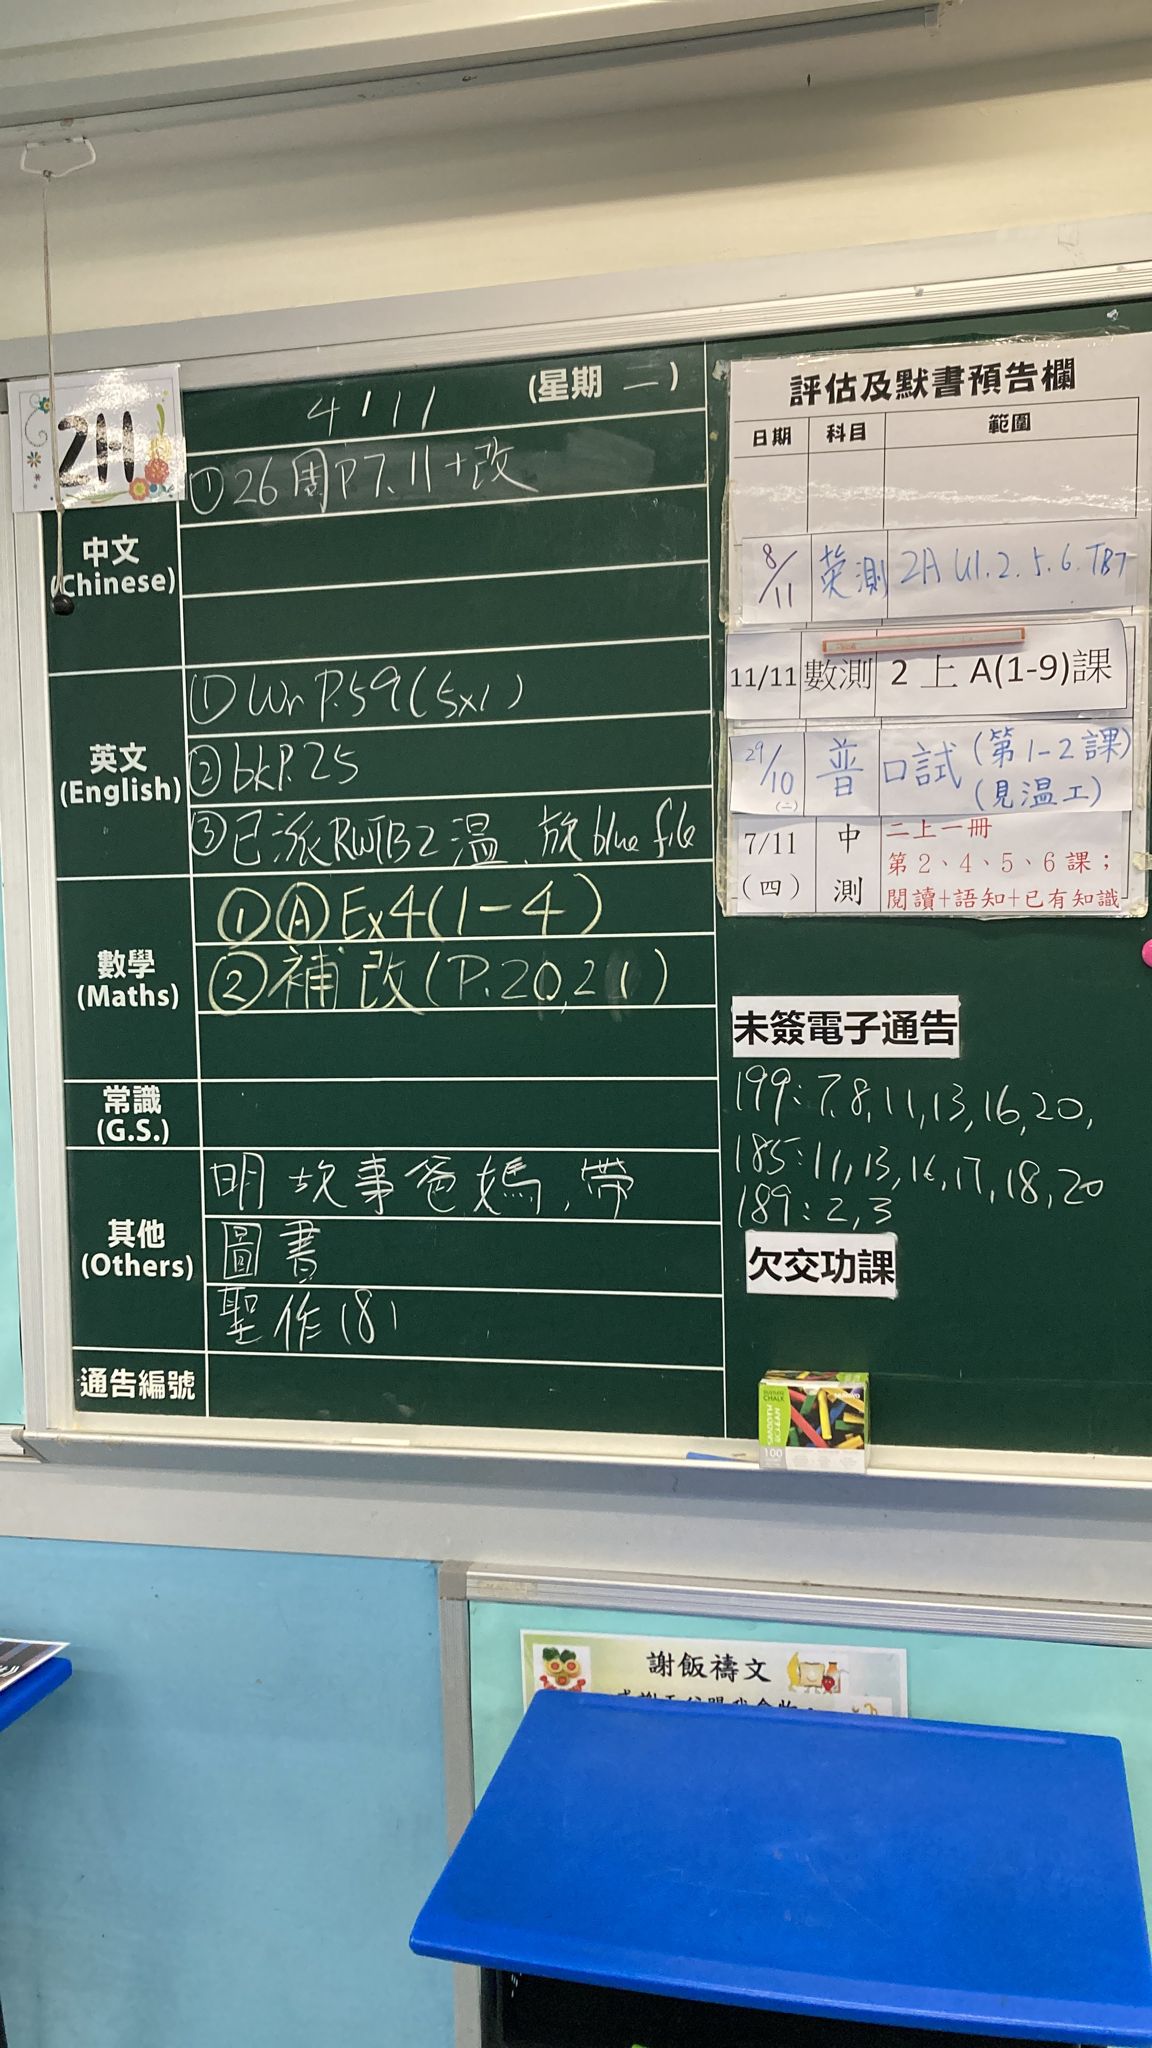 2H
4/11 (星期 一)
中文
(Chinese)
①26周P7.11+改
英文
(English)
①Wr P.59(5x1)
②bkP.25
③已派RWTB2溫.放blue file
數學
(Maths)
①Ⓐ Ex4(1-4)
②補改(P.20,21)
常識
(G.S.)
其他
(Others)
明故事爸媽,帶
圖書
聖作(8)
通告編號
評估及默書預告欄
日期 科目 範圍
8/11 英測 2A U1.2.5.6.TB7
11/11 數測 2 上 A(1-9)課
29/10 (二) 普 口試 (第1-2課)
(見溫工)
7/11 (四) 中測 二上一冊
第2、4、5、6課；
閱讀+語知+已有知識
未簽電子通告
199:7,8,11,13,16,20,
185:11,13,16,17,18,20
189:2,3
欠交功課
CHALK
100
謝飯禱文